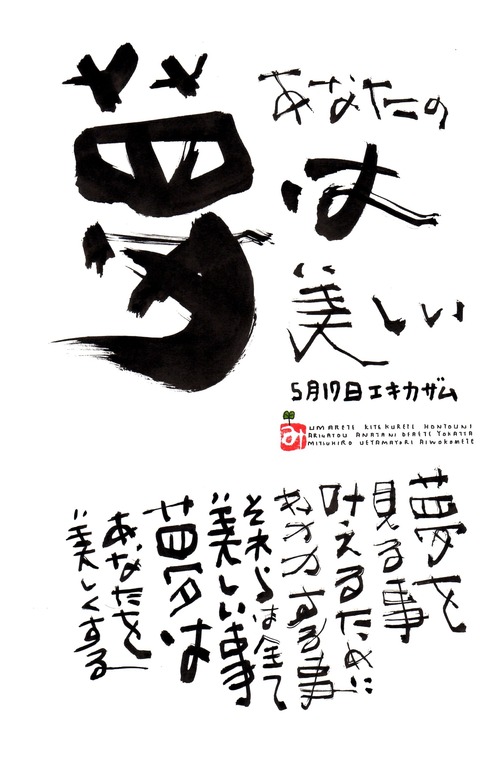 あなたの
夢
は
美しい
5月17日エキカザム
み
UMARETE KITEKURETE HONTOUNI
ARIGATOU ANATANI DEAETE YOKATTA
MITSUHIRO UETAMAYORI AIWOKOMETE
夢を
見る事
叶えるために
努力する事
それらは全て
美しい事
夢は
あなたを
美しくする